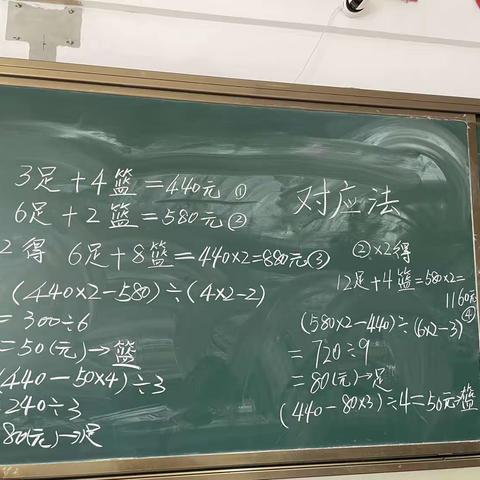 3足+4篮=440元①
6足+2篮=580元②
2得 6足+8篮=440×2=880元③
(440×2-580)÷(4×2-2)
=300÷6
=50(元)→篮
(440-50×4)÷3
=240÷3
80(元)→足
对应法
②×2得
12足+4篮=580×2=
1160元
④
(580×2-440)÷(6×2-3)
=720÷9
=80(元)→足
(440-80×3)÷4=50元→篮